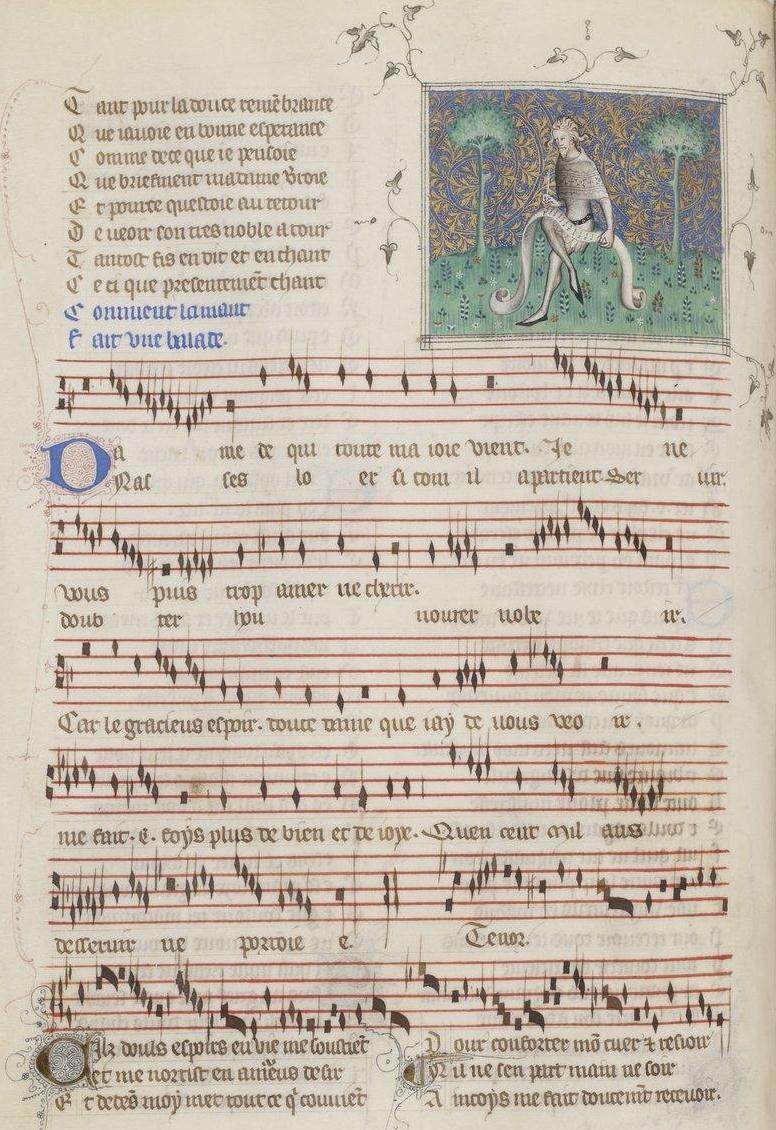 Tant pour la douce remēbrance
Que iauoie en bonne esperance
Comme de ce que ie pensoie
Que briefment ma dame verroie
Et pource questoie au retour
De ueoir son tres noble atour
Tantost fis en dit et en chant
Ce ci que presentemēt chant
Comment lamant
Fait vne balade.
Da me de qui toute ma ioie vient. Je ne
Nas ses lo er si com il apartient. Ser uir.
vous puis trop amer ne cherir.
doub ter hou nourer nobe ir.
Car le gracieus espoir. douce dame que iay de uous veo ir.
me fait. C. foys plus de bien et de ioye. Quen cent mil ans
desseruir ne porroie e.
Tenor.
Cilz douls espoirs en vie me soustiēt
et me norrist en amēus desir
Et dedēs moy met tout ce q̄ couuiēt
Pour conforter mō cuer & resioir
Nil ne sen part main ne soir
Aincoys me fait doucemt̄ receuoir.